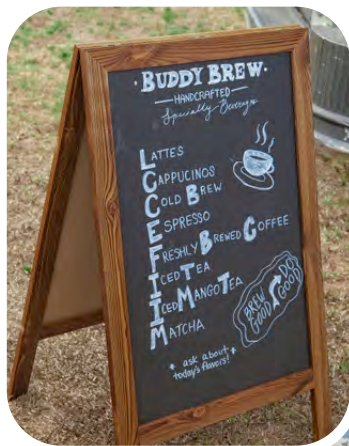 · BUDDY BREW ·
— HANDCRAFTED —
Specialty Beverages
LATTES
CAPPUCINOS
COLD BREW
ESPRESSO
FRESHLY BREWED COFFEE
ICED TEA
ICED MANGO TEA
MATCHA
BREW GOOD
DO GOOD
* ask about *
today's flavors!